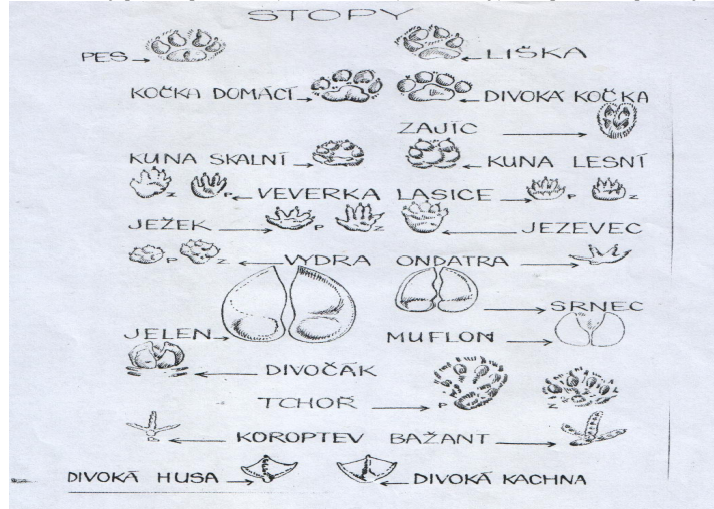 STOPY
PES LIŠKA
KOČKA DOMÁCÍ DIVOKÁ KOČKA
ZAJÍC
KUNA SKALNÍ KUNA LESNÍ
Z P VEVERKA LASICE P Z
JEŽEK P Z JEZEVEC
P Z VYDRA ONDATRA
SRNEC
JELEN MUFLON
DIVOČÁK
TCHOŘ P Z
KOROPTEV BAŽANT
DIVOKÁ HUSA DIVOKÁ KACHNA